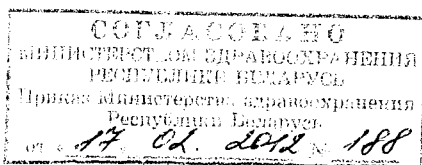 СОГЛАСОВАНО
МИНИСТЕРСТВОМ ЗДРАВООХРАНЕНИЯ
РЕСПУБЛИКИ БЕЛАРУСЬ
Приказ Министерства здравоохранения
Республики Беларусь
от « 17 02. 2012 № 188